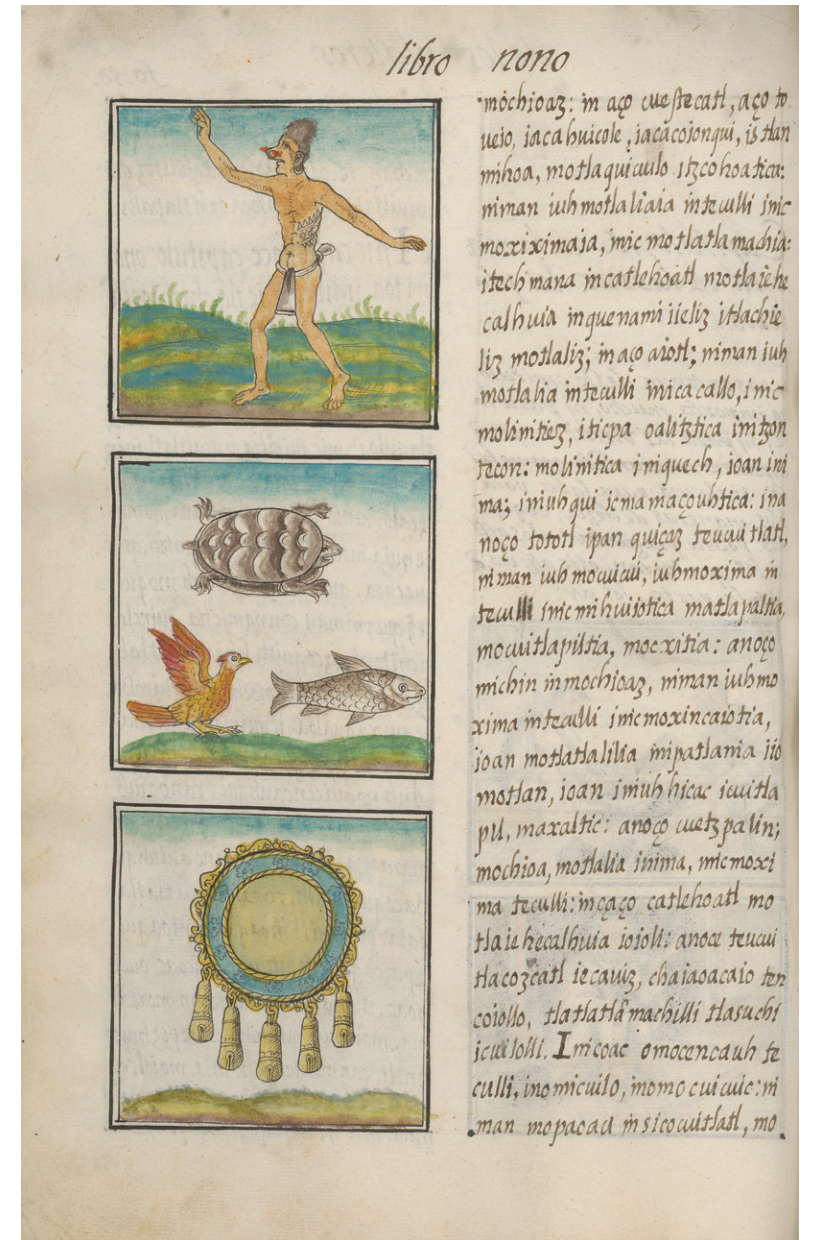 libro nono
mochioaz: in aço cuextecatl, aço to
ueio, iacahuicole, iacacoionqui, istlan
mihoa, motlaquicuilo itzcohoatica:
niman iuh motlaliaia in teculli inic
moxiximaia, inic motlatlamachia:
itech mana in catlehoatl motlaiehe
calhuia in quenami iieliz itlachie
liz motlaliz; in aço aiotl; niman iuh
motlalia in teculli inicacallo, inic
molinitiez, iticpa oalitztica initzon
tecon: molinitica iniquech, ioan ini
ma; iniuhqui ic mamaçouhtica: ina
noço tototl ipan quiçaz teucuitlatl,
niman iuh mocuicui, iuh moxima in
teculli inic mihuiiotica matlapaltia,
mocuitlapiltia, mocxitia: anoço
michin in mochioaz, niman iuh mo
xima in teculli inic moxincaiotia,
ioan motlatlalilia inipatlania iio
motlan, ioan iniuh hicac icuitla
pil, maxaltic: anoço cuetzpalin;
mochioa, motlalia inima, inic moxi
ma teculli: in çaço catlehoatl mo
tlaiehecalhuia ioioli: anoce teucui
tlacozcatl iecauiz, chaiaoacaio ten
coiollo, tlatlatlamachilli tlasuchi
icuilolli. Inicoac omocencauh te
culli, inomicuilo, inomocuicuic: ni
man mopaoaci in sicocuitlatl, mo